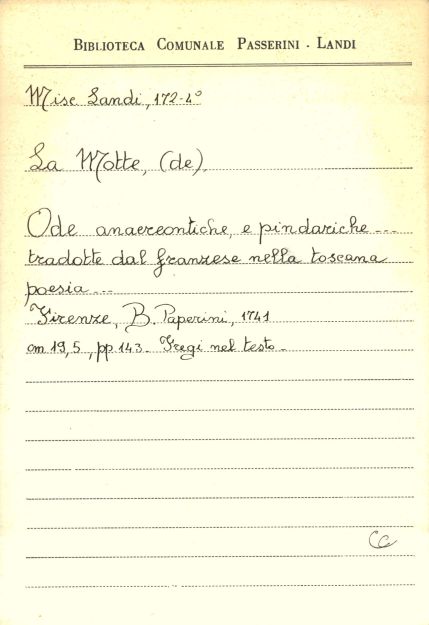 BIBLIOTECA COMUNALE PASSERINI - LANDI
Misc Landi, 172-4°
La Motte, (de).
Ode anacreontiche, e pindariche ...
tradotte dal franzese nella toscana
poesia ...
Firenze, B. Paperini, 1741
cm 19,5, pp 143 - Fregi nel testo -